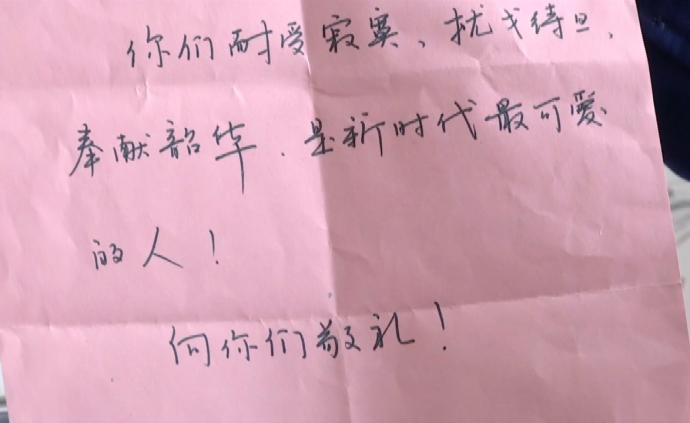 你们耐受寂寞、扰戈待旦、
奉献韶华.是新时代最可爱
的人！
向你们敬礼！